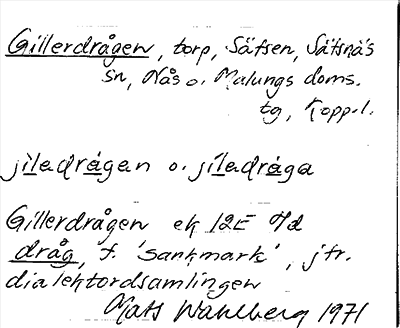 Gillerdrågen, torp, Säfsen, Säfsnäs
sn, Nås o. Malungs doms.
tg, Kopp.l.
jı̲ledrågen o. jı̲ledråga
Gillerdrågen ek 12E
dråg, f. 'sankmark', jfr.
dialektordsamlingen
Mats Wahlberg 1971